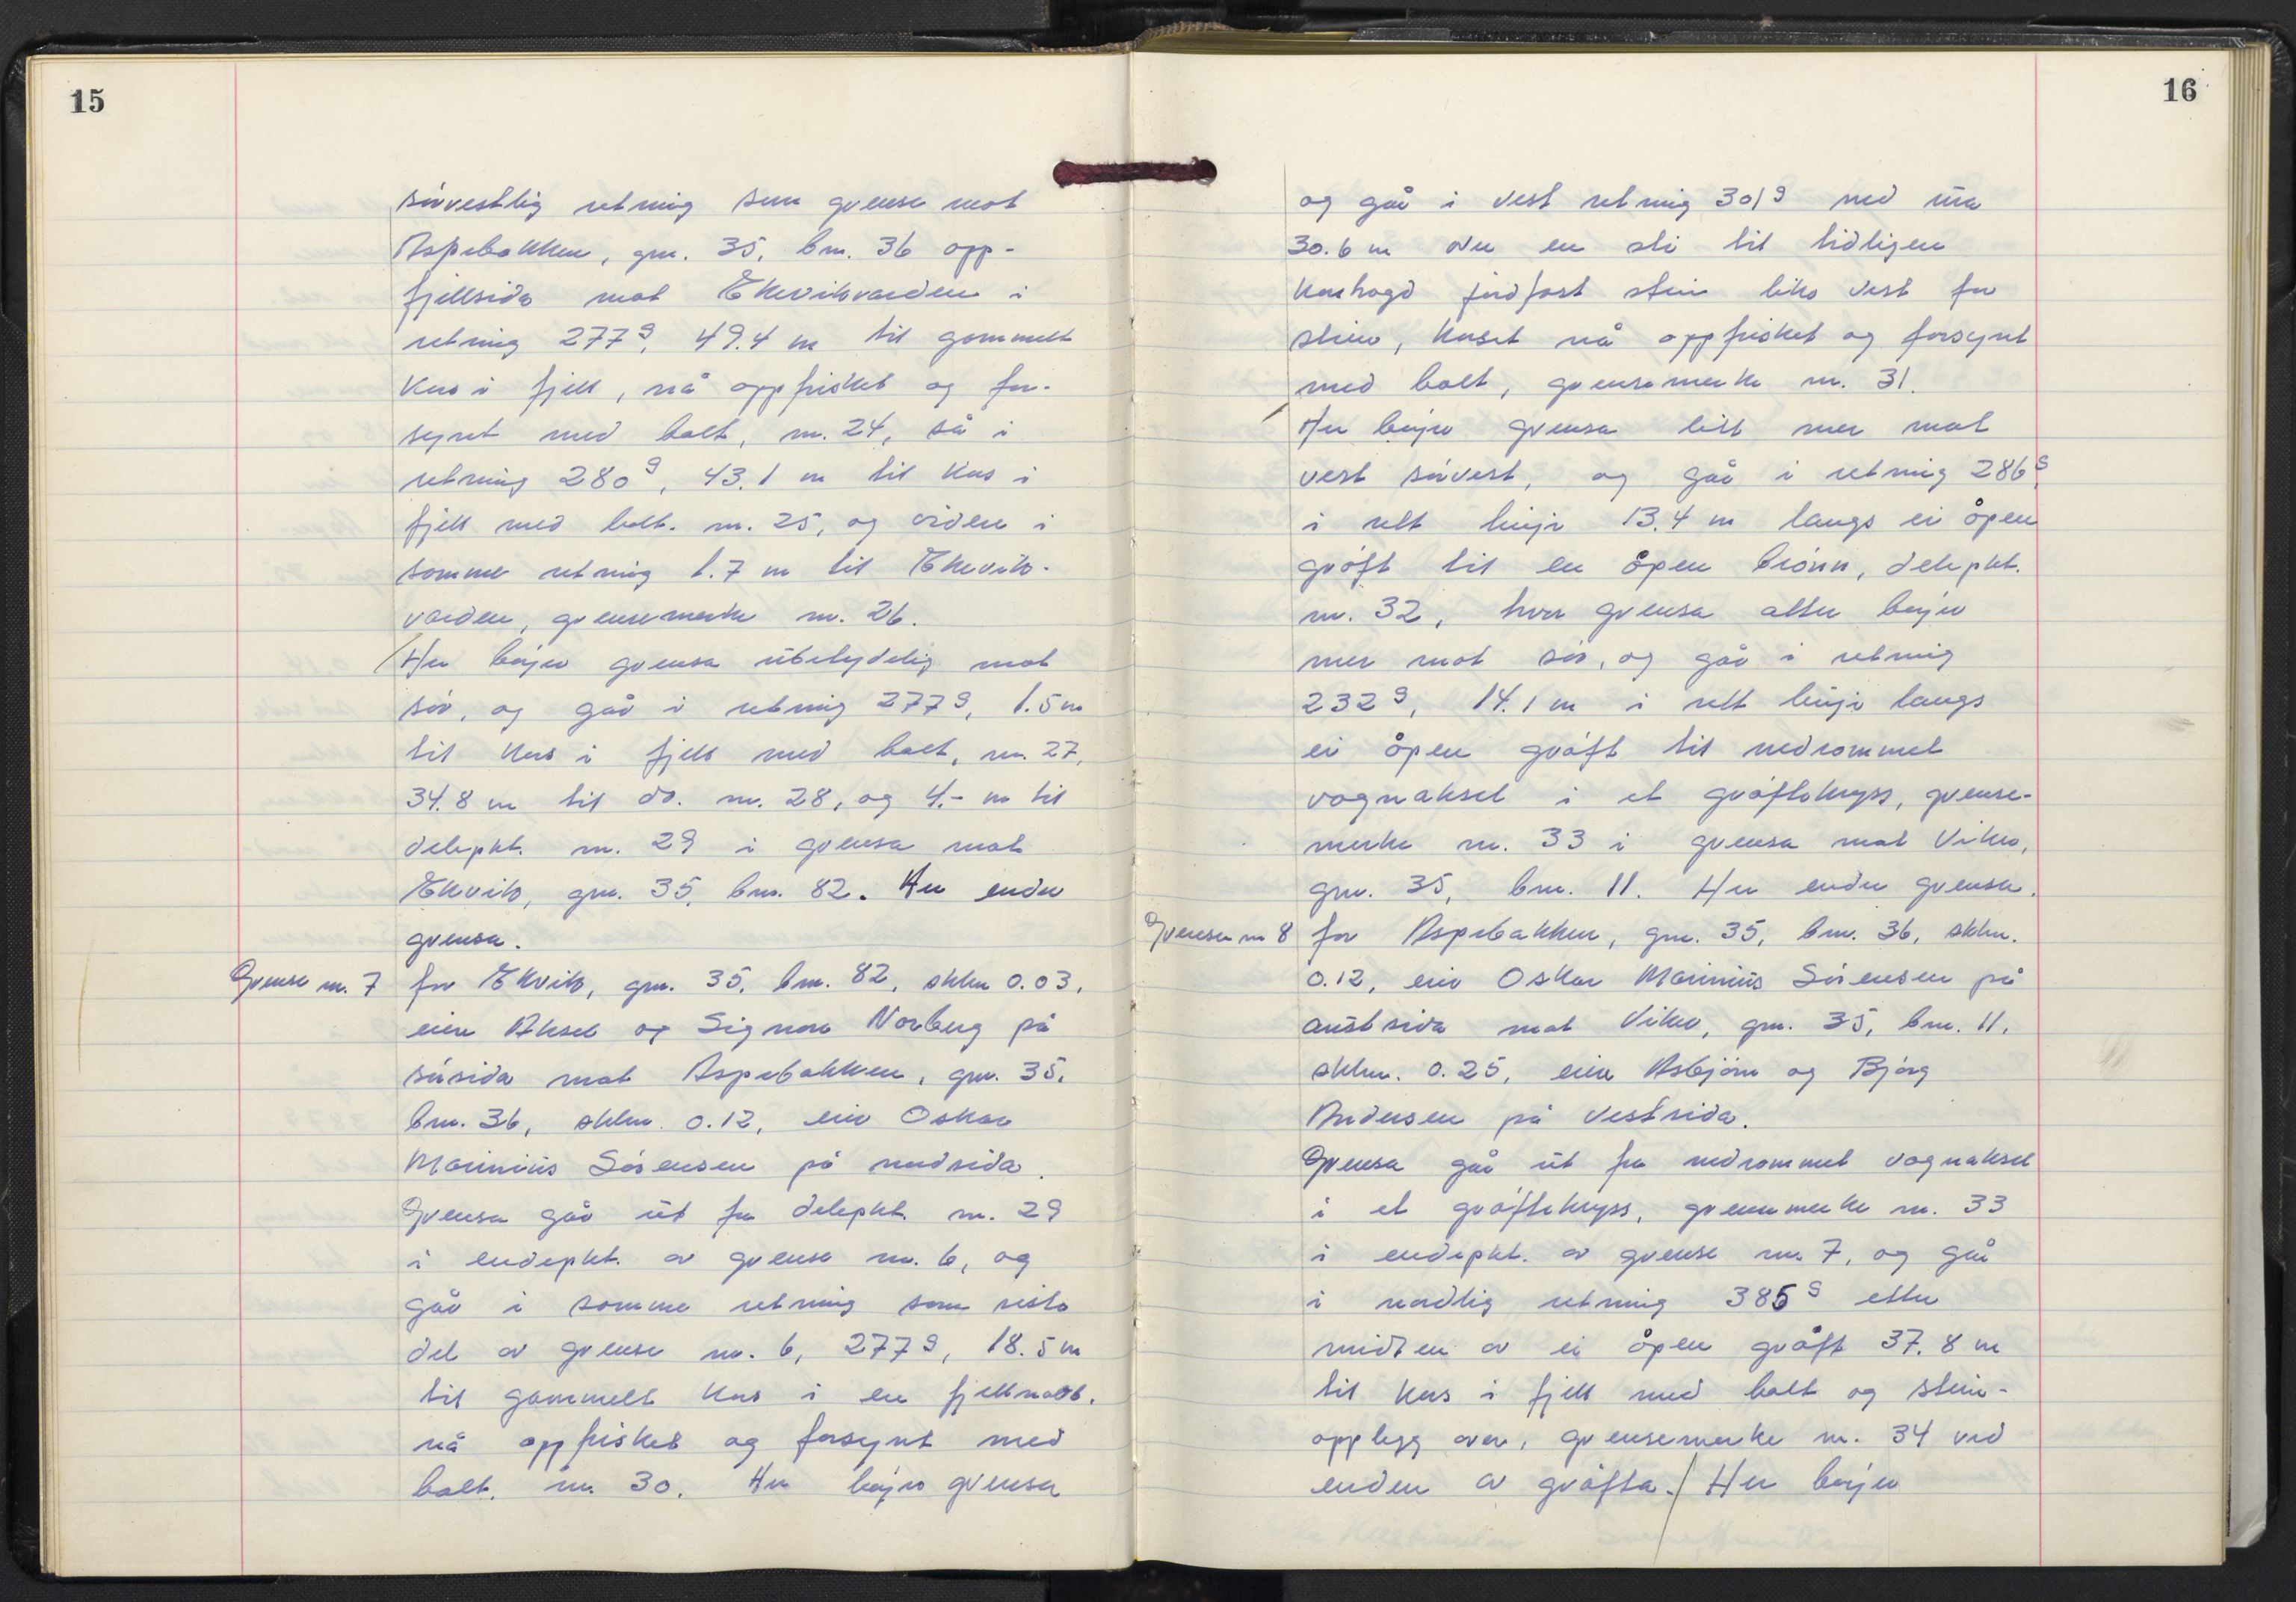 15
sørvestlig retning som grense mot
Aspebakken, gnr. 35, bnr. 36 opp-
fjellsida mot Ekevikvarden i
retning 277g, 49.4 m til gammelt
kors i fjell, nå oppfrisket og for-
synt med bolt, nr. 24, så i
retning 280g, 43.1 m til kors i
fjell med bolt. nr. 25, og videre i
samme retning 1.7 m til Ekevik-
varden, grensemerke nr. 26.
Her bøjer grensa ubetydelig mot
sør, og går i retning 277g, 1.5 m
til kors i fjell med bolt, nr. 27,
34.8 m til do. nr. 28, og 4.- m til
delepkt. nr. 29 i grensa mot
Ekvik, gnr. 35, bnr. 82. Her ender
grensa.
Grense nr. 7 for Ekvik, gnr. 35, bnr. 82, skhu 0.03,
eiere Aksel og Signora Norberg på
sørsida mot Aspebakken, gnr. 35,
bnr. 36, skhu. 0.12, eier Oskar
Marinius Sørensen på nordsida.
Grensa går ut fra delepkt. nr. 29
i endepkt. av grense nr. 6, og
går i samme retning som siste
del av grense nr. 6, 277g, 18.5 m
til gammelt kors i en fjellnabb,
nå oppfrisket og forsynt med
bolt. nr. 30. Her bøjer grensa
16
og går i vest retning 301g ned ura
30.6 m over en sti til tidligere
korshogd jordfast stein like vest for
stien, korset nå oppfrisket og forsynt
med bolt, grensemerke nr. 31.
Her bøjer grensa litt mer mot
vest sørvest, og går i retning 286g,
i rett linje 13.4 m langs ei åpen
grøft til en åpen brønn, delepkt.
nr. 32, hvor grensa atter bøjer
mer mot sør, og går i retning
232g, 14.1 m i rett linje langs
ei åpen grøft til nedrammet
vognaksel i et grøftekryss, grense-
merke nr. 33 i grensa mot Viker,
gnr. 35, bnr. 11. Her ender grensen.
Grensen nr 8 for Aspebakken, gnr. 35, bnr. 36, skhu.
0.12, eier Oskar Marinius Sørensen på
austsida mot Viker, gnr. 35, bnr. 11,
skhu. 0.25, eiere Asbjørn og Bjørg
Andersen på vestsida.
Grensa går ut fra nedrammet vognaksel
i et grøftekryss, grensemerke nr. 33
i endepkt. av grense nr. 7, og går
i nordlig retning 385g etter
midten av ei åpen grøft 37.8 m
til kors i fjell med bolt og stein-
opplegg over, grensemerke nr. 34 ved
enden av grøfta. / Her bøjer